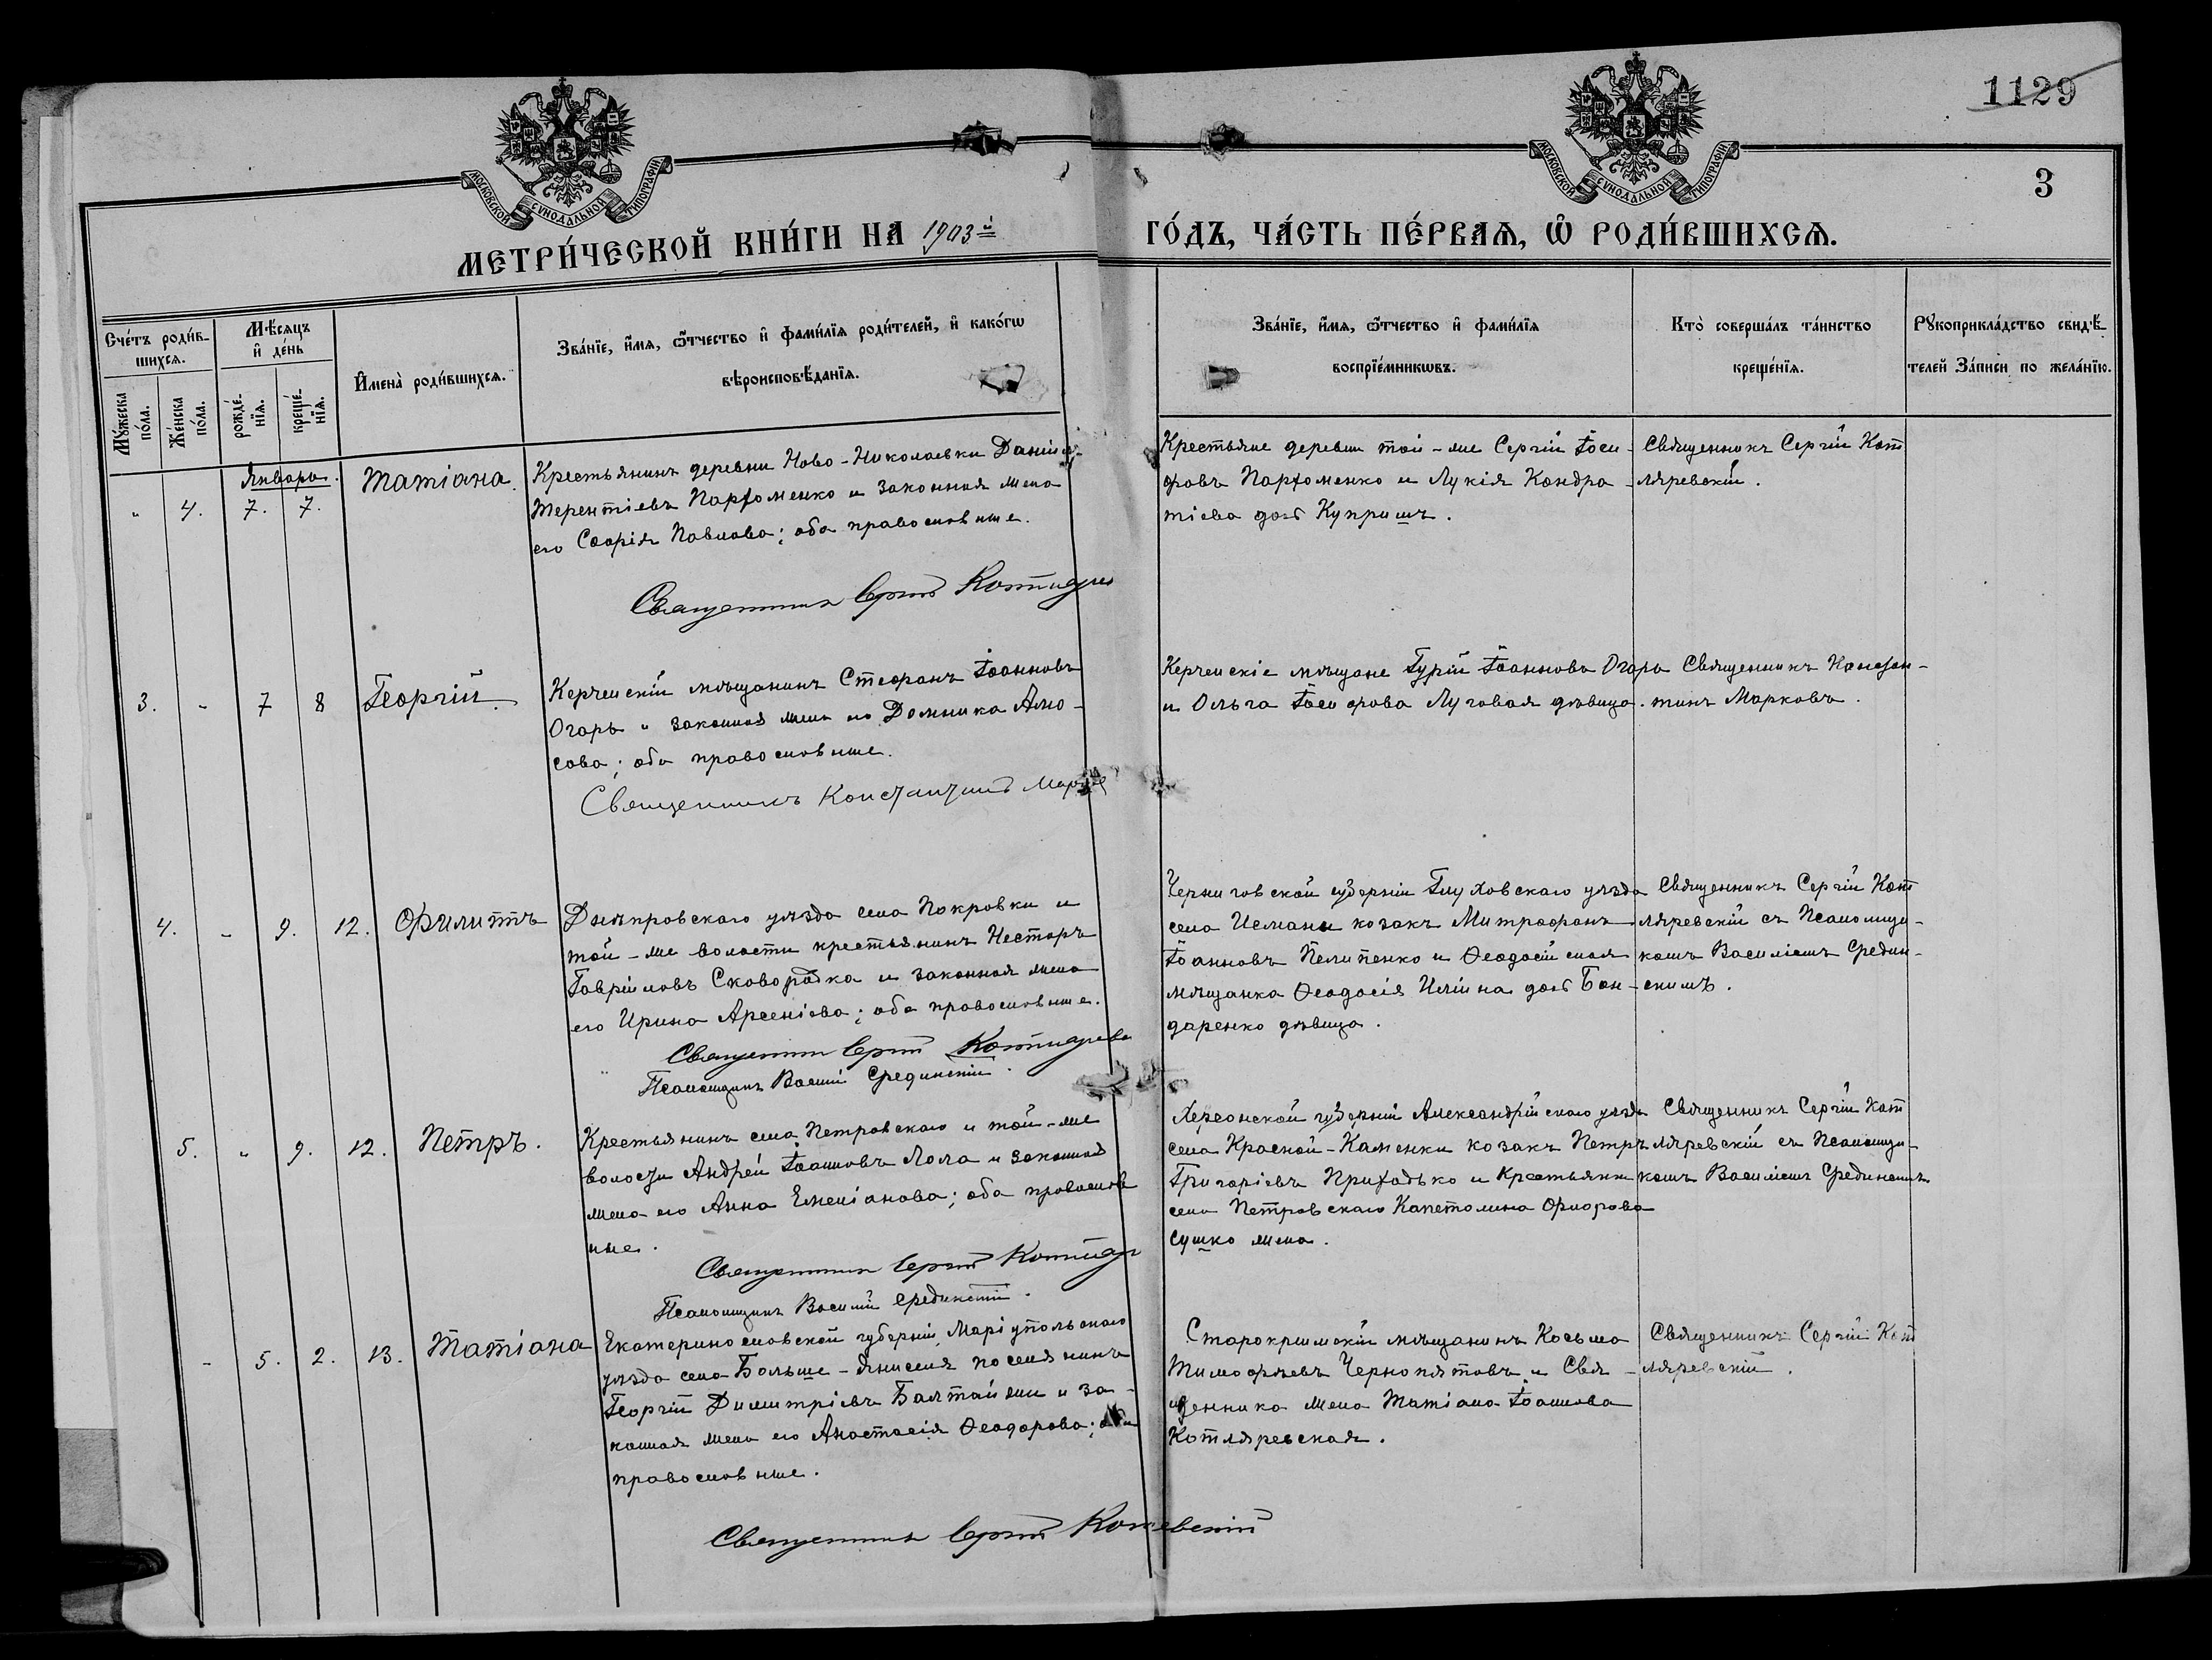 1129
3
МОСКОВСКОЙ СѴНОДАЛЬНОЙ ТИПОГРАФІИ
МОСКОВСКОЙ СѴНОДАЛЬНОЙ ТИПОГРАФІИ
МЕТРИ́ЧЕСКОЙ КНИ́ГИ НА 1903й
ГО́ДЪ, ЧА́СТЬ ПЕ́РВАѦ, Ѡ҆ РОДИ́ВШИХСѦ.
Сче́тъ роди́в-
шихсѧ.
Мꙋ́жеска по́ла.
Же́нска по́ла.
Мѣ́сѧцъ и҆ де́нь
рожде́-нїѧ.
креще́-нїѧ.
И҆мена̀ роди́вшихсѧ.
Зва́нїе, и҆́мѧ, ѻ҆́тчество и҆ фами́лїѧ роди́телей, и҆ како́гѡ
вѣроисповѣ́данїѧ.
Зва́нїе, и҆́мѧ, ѻ҆́тчество и҆ фами́лїѧ
воспрїе́мникѡвъ.
Кто̀ соверша́лъ та́инство
креще́нїѧ.
Рꙋкоприкла́дство свидѣ́-
телей За́писи по жела́нїю.
Января.
" 4. 7. 7.
Татіана.
Крестьянинъ деревни Ново-Николаевки Даніил
Терентіевъ Парѳоменко и законная жена
его Софія Павлова; оба православные.
Священникъ Сергій Котляре
Крестьяне деревни той-же Сергій Іоси-
фовъ Парѳоменко и Лукія Кондра-
тіева дочь Купришъ.
Священникъ Сергій Кот
ляревскій.
3. - 7 8
Георгій.
Керченскій мѣщанинъ Стефанъ Іоанновъ
Огарь и законная жена его Домника Амо-
сова; оба православные.
Священникъ Константинъ Марков
Керченскіе мѣщане Гурій Іоанновъ Огарь
и Ольга Іосифова Луговая дѣвица.
Священникъ Констан-
тинъ Марковъ.
4. - 9. 12.
Филиппъ
Днѣпровскаго уѣзда села Покровки и
той-же волости крестьянинъ Несторъ
Гавріиловъ Сковородка и законная жена
его Ирина Арсеніева; оба православные.
Священникъ Сергій Котляревс
Псаломщикъ Василій Срединскій.
Черниговской губерніи Глуховскаго уѣзда
села Есмани козакъ Митрофанъ
Іоанновъ Пелипенко и Ѳеодосійская
мѣщанка Ѳеодосія Иліина дочь Бон-
даренко дѣвица.
Священникъ Сергій Кот
ляревскій съ Псаломщи-
комъ Василіемъ Средин-
скимъ.
5. " 9. 12.
Петръ.
Крестьянинъ села Петровскаго и той-же
волости Андрей Іоанновъ Лола и законная
жена его Анна Емеліанова; оба православ
ные.
Священникъ Сергій Котляр
Псаломщикъ Василій Срединскій.
Херсонской губерніи Александрійскаго уѣзда
села Красной-Каменки козакъ Петръ
Григоріевъ Приходько и Крестьянки
села Петровскаго Капетолина Флорова
Сушко жена.
Священникъ Сергій Кот
ляревскій съ Псаломщи-
комъ Василіемъ Срединскимъ
- 5. 2. 13.
Татіана
Екатеринославской губерніи Маріупольскаго
уѣзда села Больше-Яниселя поселянинъ
Георгій Димитріевъ Балтайжи и за-
конная жена его Анастасія Ѳеодорова; оба
православные.
Священникъ Сергій Котевскій
Старокрымскій мѣщанинъ Косьма
Тимофѣевъ Чернопятовъ и Свя-
щенника жена Татіана Іоаннова
Котляревская.
Священникъ Сергій Кот
ляревскій.